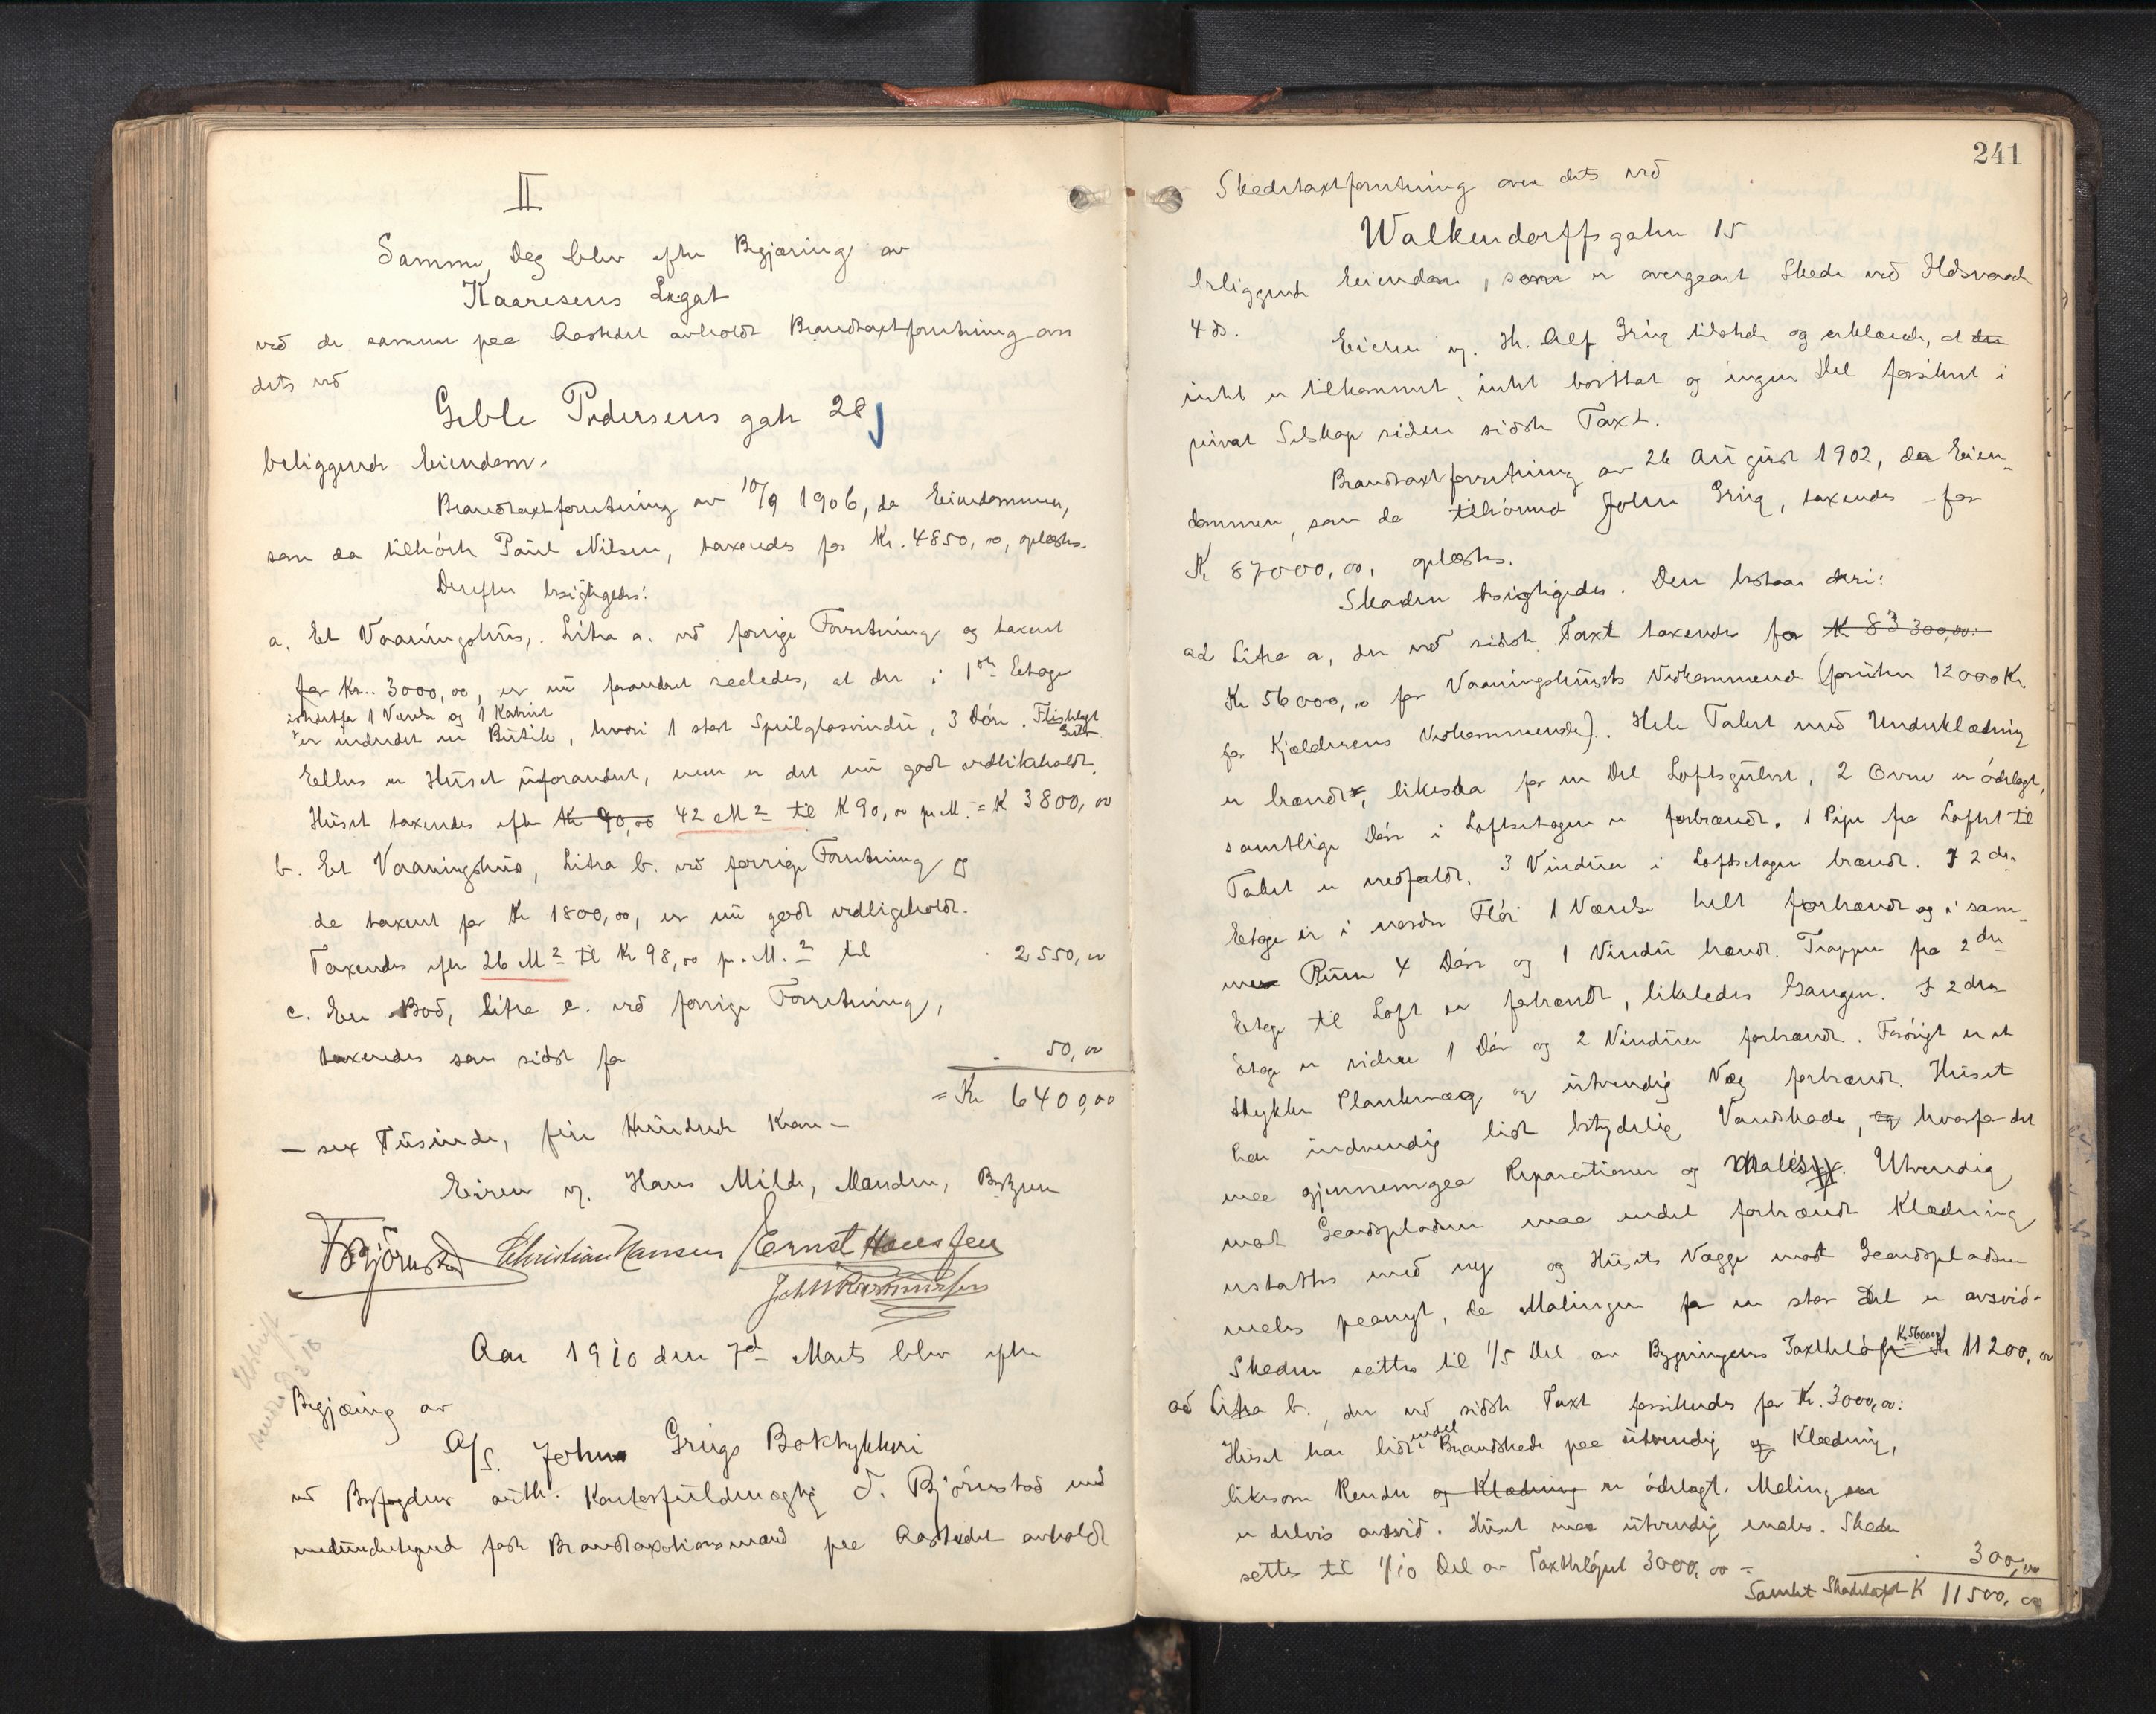 II
Samme Dag blev efter Begjæring av
Kaaresens Legat
ved de samme paa Aastedet avholdt Brandtaxtforretning over
dets ved
Geble Pedersens gate 28
beliggende Eiendom.
Brandtaxtforretning av 10/9 1906, da Eiendommen,
som da tilhørte Paul Nilsen, taxeredes for Kr. 4850,00, oplæstes.
Derefter besigtigedes:
a. Et Vaaningshus, Litra a. ved forrige Forretning og taxeret
for Kr. 3000,00, er nu forandret saaledes, at der i 1ste Etage
istedetfor 1 Værelse og 1 Kabinet
er indredet en Butik, hvori 1 stort Speilglasvindu, 3 Døre. Flislagt
Gulv
Ellers er Huset uforandret, men er det nu godt vedlikeholdt.
Huset taxeredes efter Kr 90,00 42 M2 til K 90,00 pr M. = K 3800,00
b. Et Vaaningshus, Litra b. ved forrige Forretning og
da taxeret for Kr 1800,00, er nu godt vedligeholdt.
Taxeredes efter 26 M2 til Kr 98,00 pr. M.2 til 2550,00
c. En Bod, litra c. ved forrige Forretning,
taxeredes som sidst for 50,00
= Kr 6400,00
— sex Tusinde, fire Hundrede Kroner —
Eieren v. Hans Milde, Manden,
TBjørnstad Christian Hansen Ernst Hansen
Joh Rasmussen
Utskrift
sendt 3 10
Aar 1910 den 7d Marts blev efter
Begjæring av
A/S. John Griegs Boktykkeri
ved Byfogden auth. Kontorfuldmægtig T. Bjørnstad med
medundertegned faste Brandtaxationsmænd paa Aastedet avholdt
241
Skadetaxtforretning over dets ved
Walkendorffsgaten 15
beliggende Eiendom, som er overgaaet Skade ved Ildsvaade
4 ds.
Eieren v. Hr. Alf Grieg tilstede og erklærede, at der
intet er tilkommet, intet borttat og ingen Del forsikret i
privat Selskap siden sidste Taxt.
Brandtaxtforretning av 26 August 1902, da Eien-
dommen, som da tilhørende John Grieg, taxeredes for
Kr 87000,00, oplæstes.
Skaden besigtigedes. Den bestaar deri:
ad Litra a, der ved sidste Taxt taxeredes for K 83300,00:
Kr 56000,00 for Vaaningshusets Vedkommende (foruten 12000 Kr.
for Kjælderens Vedkommende). Hele Taket med Underklædning
er brændt, likesaa for en Del Loftsgulvet, 2 Ovne er ødelagt,
samtlige Døre i Loftsetagen er forbrændt. 1 Pipe fra Loftet til
Taket er nedfaldt. 3 Vinduer i Loftsetagen brændt. I 2den
Etage er i nordre Fløi 1 Værelse helt forbrændt og i sam-
me Rum 4 Døre og 1 Vindu brændt. Trappen fra 2den
Etage til Loft er forbrændt, likeledes Gangen. I 2den
Etage er videre 1 Dør og 2 Vinduer forbrændt. Forøvrigt er et
Stykke Plankevæg og utvendig Væg forbrændt. Huset
har indvendig lidt betydelig Vandskade, og hvorfor det
maa gjennemgaa Reparationer og Males. Utvendig
mot Gaardspladsen maa endel forbrændt Klædning
erstattes med ny og Husets Vægge mot Gaardspladsen
males paanyt, da Malingen for en stor Del er avsvidd.
Skaden sættes til 1/5 Del av Bygningens Taxtbeløp Kr 56000 = Kr 11200,00
ad Litra b., der ved sidste Taxt forsikredes for Kr. 3000,00:
Huset har lidt endel Brandskade paa utvendig Klædning,
likesom Render og Klædning er ødelagt. Maling
er delvis avsvidd. Huset maa utvendig males. Skaden
sættes til 1/10 Del av Taxtbeløpet 3000,00 = 300,00
Samlet Skadetaxt K 11500,00